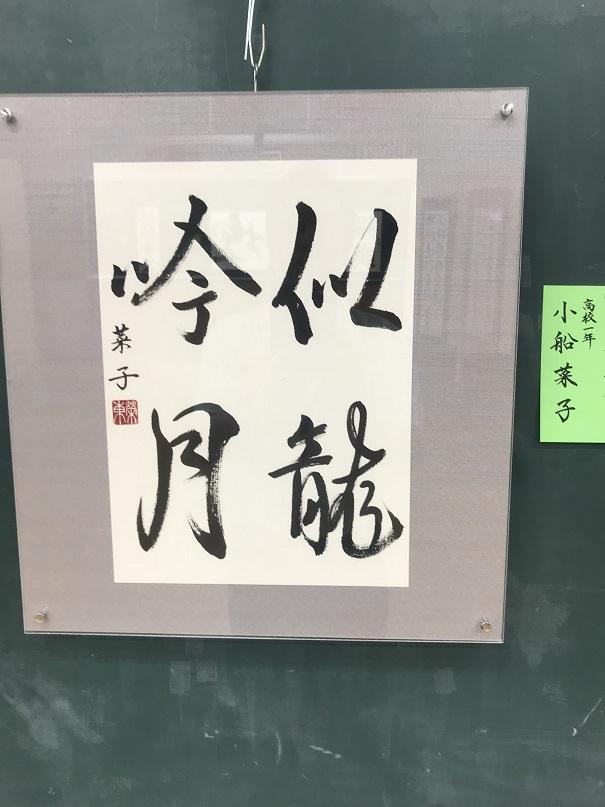 似龍
吟月
菜子
栄東
高校一年
小船菜子